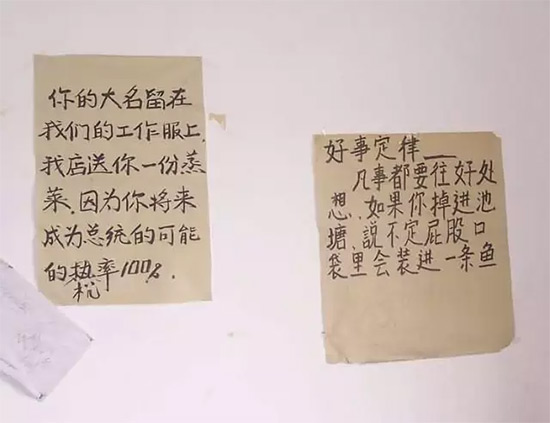 你的大名留在
我们的工作服上,
我店送你一份蒸
菜.因为你将来
成为总统的可能
的热率100%.
好事定律——
凡事都要往好处
想.如果你掉进池
塘,说不定屁股口
袋里会装进一条鱼